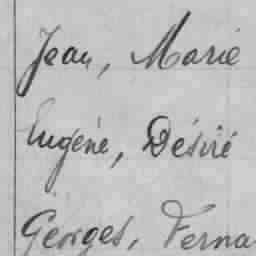 Jean, Marie
Eugène, Désiré
Georges, Ferna